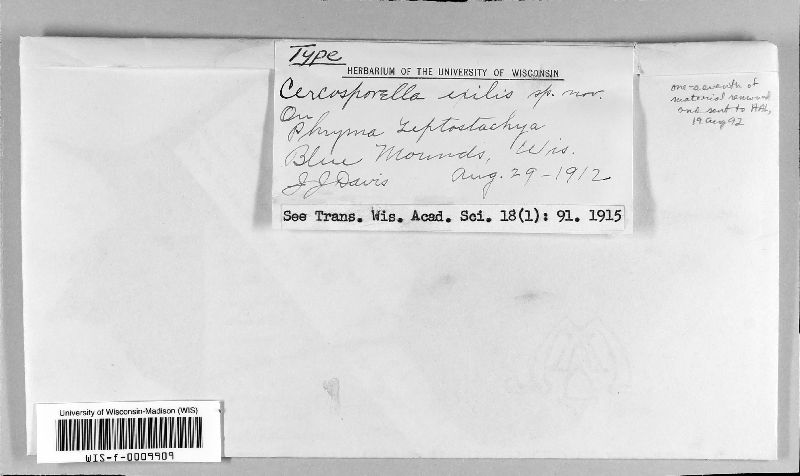 Type
HERBARIUM OF THE UNIVERSITY OF WISCONSIN
Cercosporella exilis sp. nov.
On
Phryma Leptostachya
Blue Mounds, Wis.
JJ Davis Aug. 29-1912
See Trans. Wis. Acad. Sci. 18(1): 91. 1915
one-seventh of
material removed
and sent to HAL,
19 Aug 92
University of Wisconsin-Madison (WIS)
WIS-f-0009909